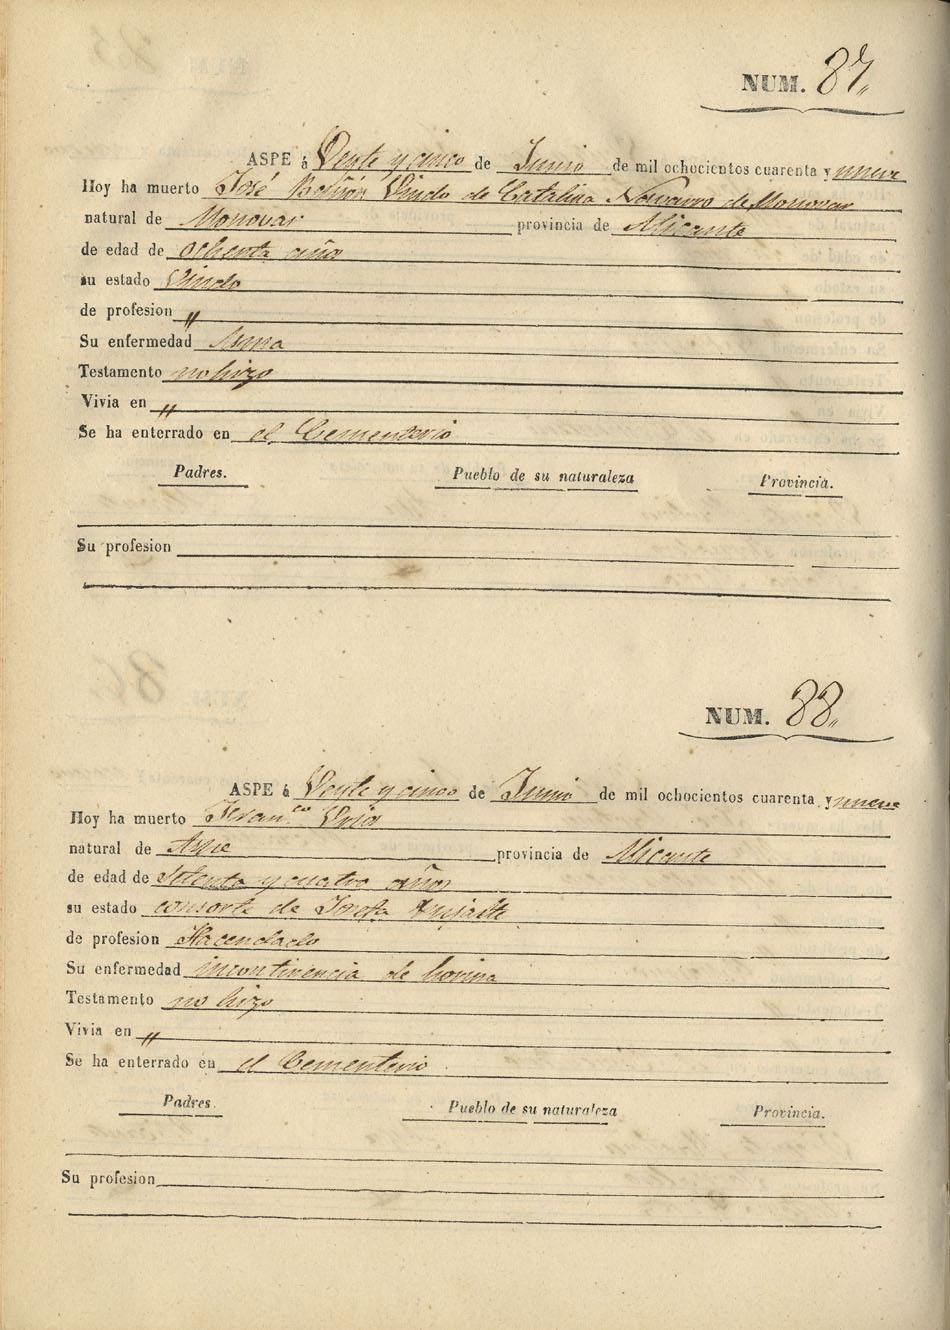 NUM. 87,,
ASPE á Vente y cinco de Junio de mil ochocientos cuarenta y nueve
Hoy ha muerto José Viudo de Catalina Navarro de Monovar
natural de Monovar provincia de Alicante
de edad de ochenta años
su estado Viudo
de profesion ,,
Su enfermedad Asma
Testamento no hizo
Vivia en ,,
Se ha enterrado en el Cementerio
Padres. Pueblo de su naturaleza Provincia.
Su profesion
NUM. 88,,
ASPE á Vente y cinco de Junio de mil ochocientos cuarenta y nueve
Hoy ha muerto Fran.co
natural de Aspe provincia de Alicante
de edad de setenta y cuatro años
su estado consorte de Josefa
de profesion Hacendado
Su enfermedad incontinencia de horina
Testamento no hizo
Vivia en ,,
Se ha enterrado en el Cementerio
Padres. Pueblo de su naturaleza Provincia.
Su profesion